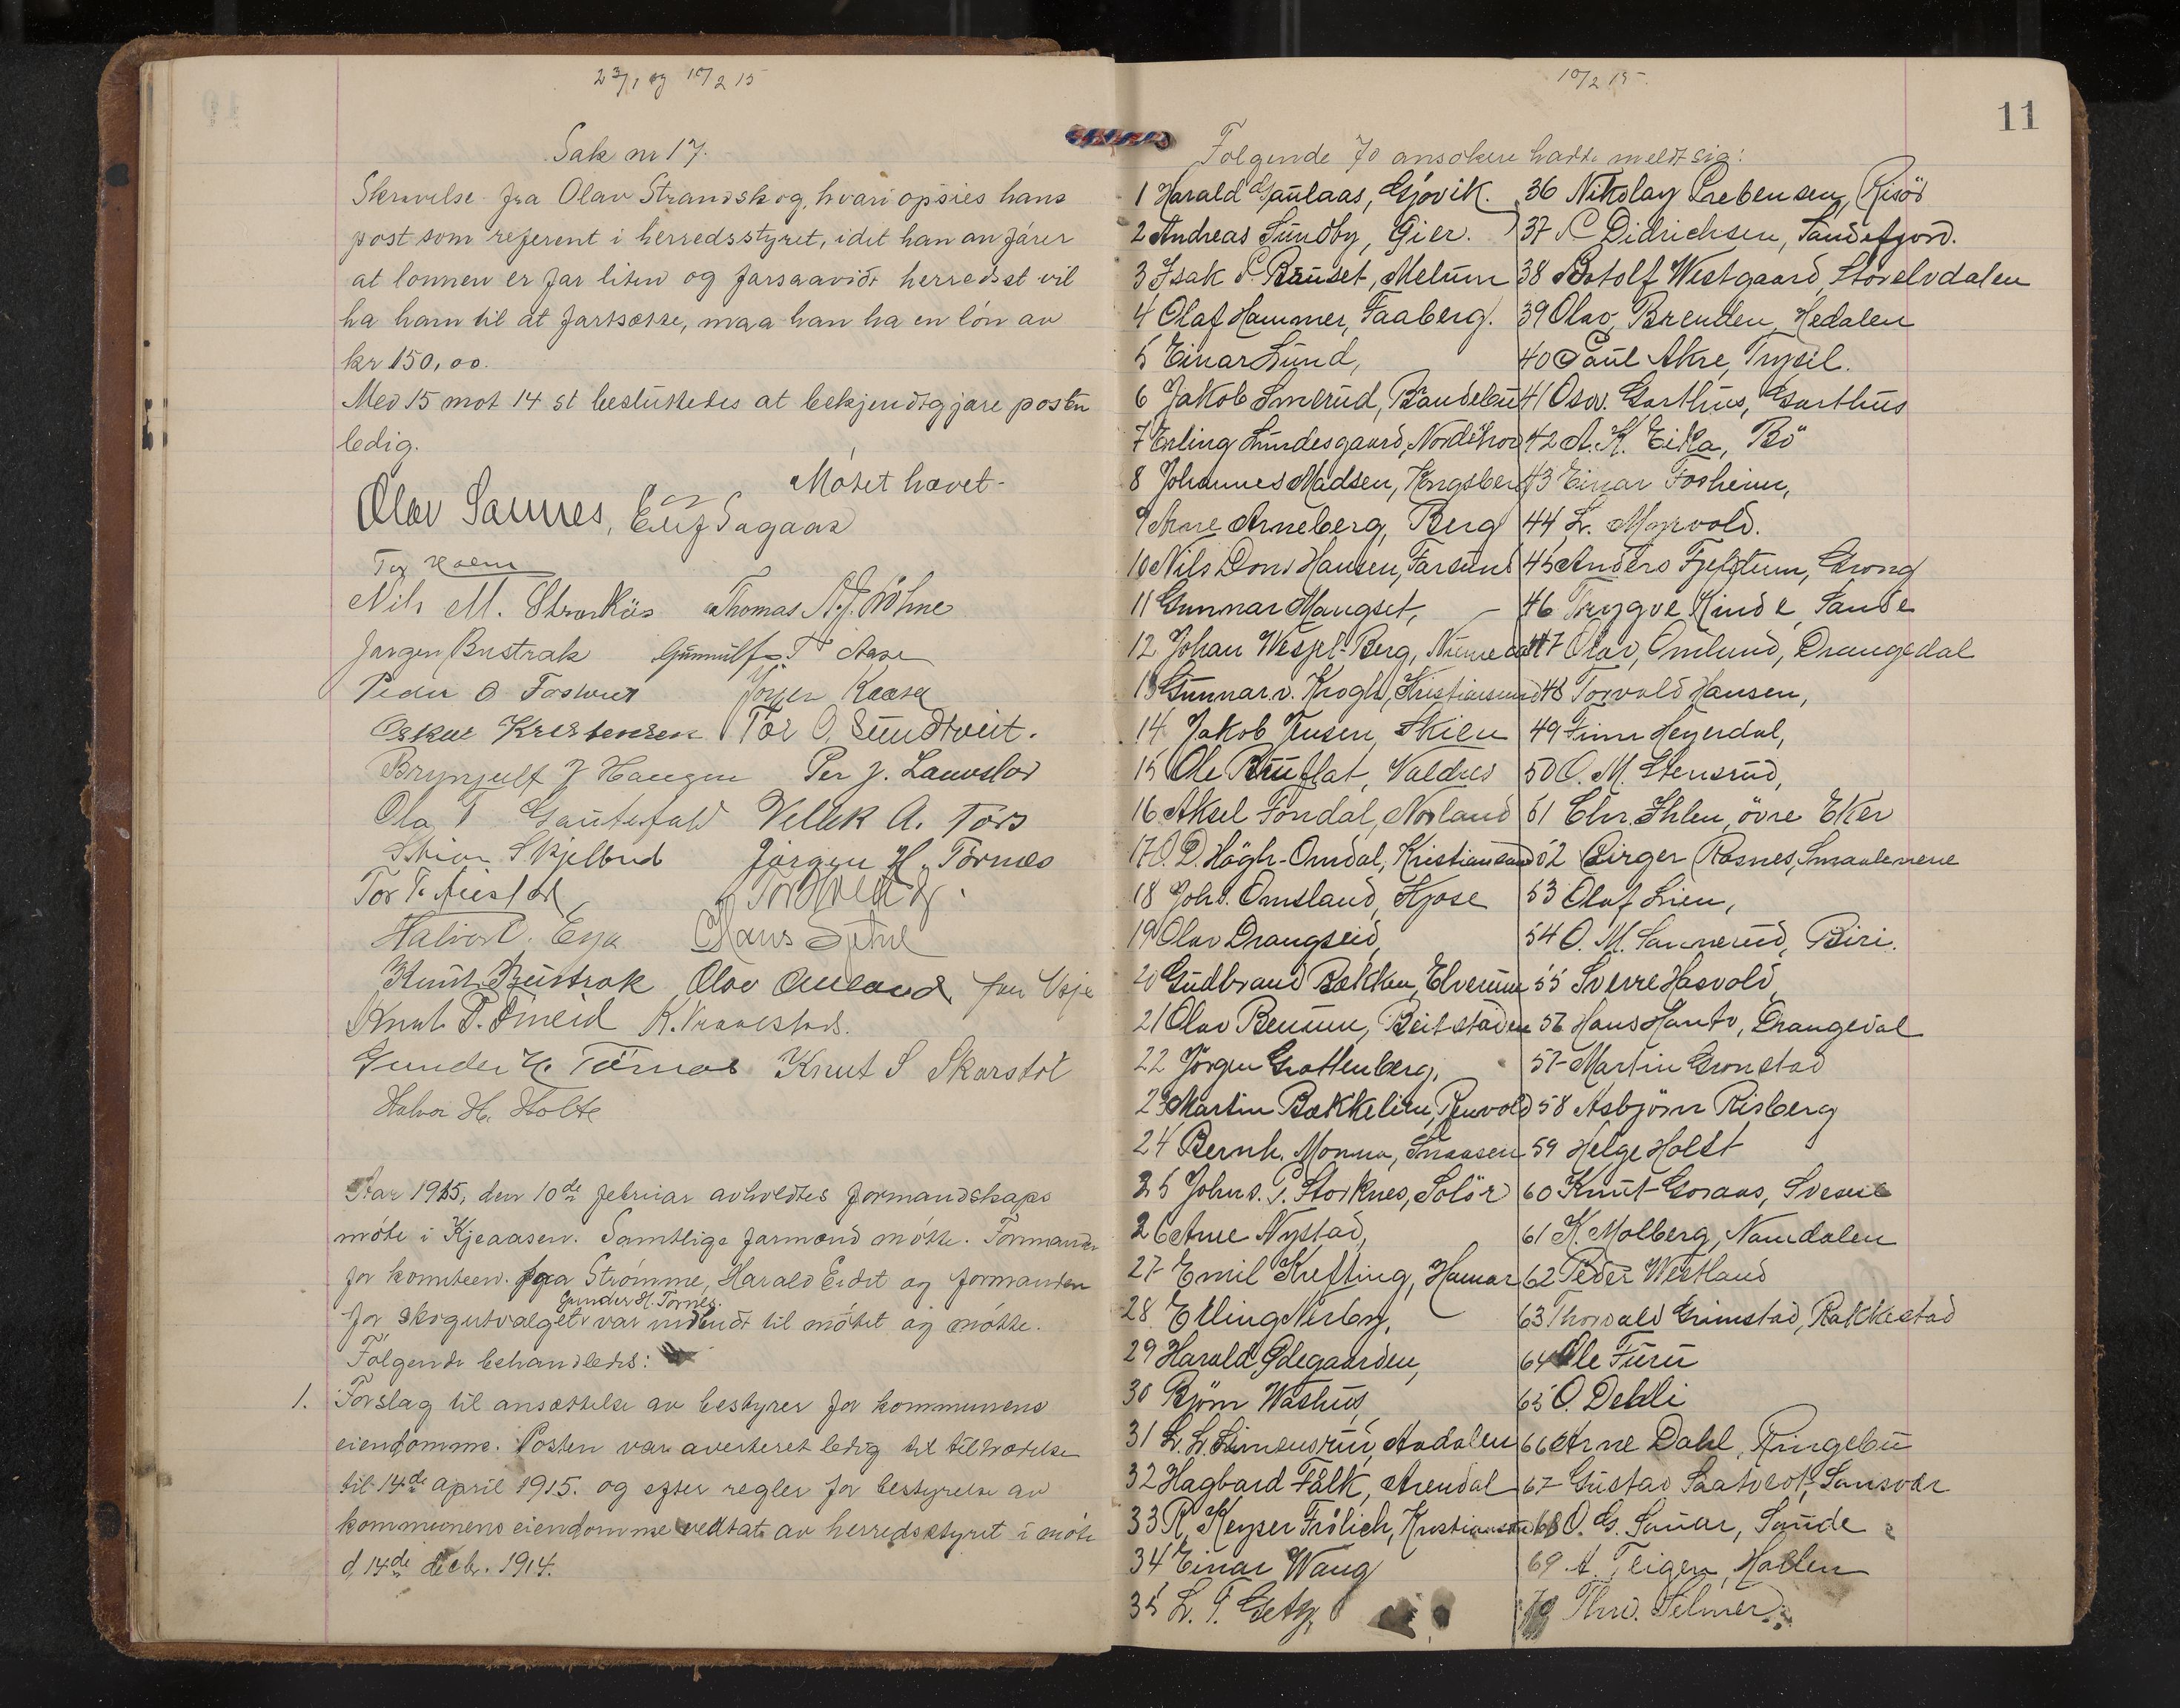 23/1 og 10/2 15
Sak nr 17.
Skrivelse fra Olav Strandskog, hvari opsies hans
post som referent i herredsstyret, idet han anfører
at lønnen er for liten og forsaavidt herredsst vil
ha ham til at fortsætte, maa han ha en løn av
kr 150,00.
Med 15 mot 14 st besluttedes at bekjendtgjøre posten
ledig.
Møtet hævet-
Olav Sannes,
Nils M. Thomas
Jørgen Bustrak Gunnulf T Aase
Peder O Jørgen Kaasa
Oskar Kristensen Tor O. Sundtveit.
Brynjulf J Haugen Per J. Lauvstad
Ola T Gautefald Vellek A. Tørs
Stian Skjelbred Jørgen H. Törnes
Tor T.
Halvor Hans
Knut Bustrak Olav
Knut P. K. Vraalstad.
Gunder H. Törnes Knut S Skarstöl
Halvor H. Holte
Aar 1915, den 10de februar avholdtes formandskaps
møte i Kjeaasen. Samtlige formænd møtte. Formanden
for komiteen. paa Strømme, Harald Eidet og formanden
Gunder H. Tørnes.
for skogutvalget var indbudt til møtet og møtte.
Følgende behandledes:
1. Forslag til ansættelse av bestyrer for kommunens
eiendomme. Posten var averteret ledig til tiltrædelse
til 14de april 1915. og efter regler for bestyrelse av
kommunens eiendomme vedtat av herredsstyret i møte
d 14de decbr. 1914.
10/2 15
11
Følgende 70 ansøkere hadde meldt sig:
1 Harald Gaulaas, Gjövik.
2 Andreas Sundby, Gier.
3 Isak P. Bruset, Melum
4 Olaf Hammer, Faaberg.
5 Einar Lund,
6 Jakob Smerud, Brandebu
7 Erling Lundesgaard, Nordskog
8 Johannes Madsen, Kongsberg
9 Arne Arneberg, Berg
10 Nils Dons Hansen, Farsund
11 Gunnar Mangset, -
12 Johan Wespl-Berg, Numedal
13 Gunnar v. Krogh, Kristiansund
14 Jakob Jensen, Skien
15 Ole Bruflat, Valdres
16 Aksel Fondal, Norland
17 O. D. Högh-Omdal, Kristiansand
18 Johs. Omsland, Kjose
19 Olav Drangseid,
20 Gudbrand Bækken, Elverum
21 Olav Benum, Beitstaden
22 Jörgen Grottenberg,
23 Martin Bækkelien, Renvold
24 Bernh. Monna, Snaasen
25 Johns. P. Storknes, Solör
26 Arne Nystad,
27 Emil Krefting, Hamar
28 Erling Nerby,
29 Harald Ödegaarden,
30 Björn Washus,
31 L. L. Simensrud, Aadalen
32 Hagbard Falk, Arendal
33 R. Keyser Frölich, Kristiansund
34 Einar Wang
35 L. T. Getz,
36 Nikolay Prebensen, Risör
37 C Didrichsen, Sandefjord.
38 Botolf Westgaard, Storelvdalen
39 Olav Brenden, Hedalen
40 Paul Akre, Trysil.
41 Osv. Garthus, Garthus
42 A. K. Eika, Bö
43 Einar Fosheim,
44 L. Myrvold.
45 Anders Fjeldtum, Grong
46 Trygve Kinde, Sande
47 Olav, Omlund, Drangedal
48 Torvald Hansen,
49 Finn Heyerdal,
50 O. M. Stensrud,
51 Chr. Ihlen, övre Eker
52 Birger Rosnes, Smaalenene
53 Olaf Lien,
54 O. M. Sannerud, Biri.
55 Sverre Hasvold,
56 Hans Hanto, Drangedal
57 Martin Gronstad
58 Asbjörn Risberg
59 Helge Holst
60 Knut Goraas, Svene
61 K. Molberg, Namdalen
62 Peder Westland
63 Thorvald Grimstad, Rakkestad
64 Ole Furu
65 O. Dehli
66 Arne Dahl, Ringebu
67 Gustav Saatvedt, Sansvær
68 O. G. Sauar, Sande
69 A. Teigen, Hallen
70 Thrv. Selmer.